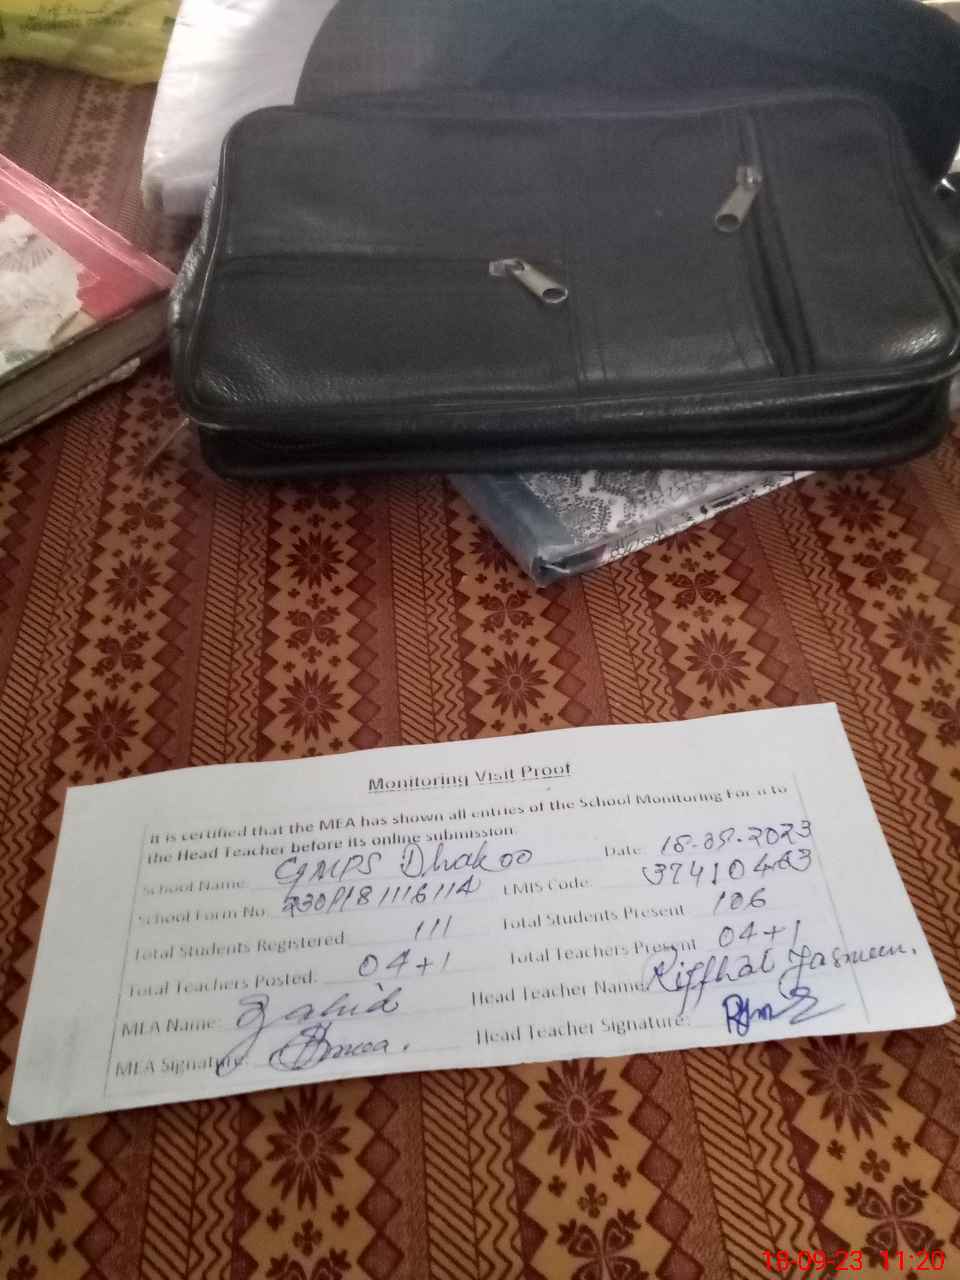 Monitoring Visit Proof
It is certified that the MEA has shown all entries of the School Monitoring Form to
the Head Teacher before its online submission.
School Name: GMPS Dhakoo Date: 18-09-2023
School Form No: 2309181116114 EMIS Code: 37410463
Total Students Registered 111 Total Students Present 106
Total Teachers Posted: 04+1 Total Teachers Present 04+1
MEA Name: Zahid Head Teacher Name: Riffhat Yasmeen.
MEA Signature: Head Teacher Signature:
18-09-23 11:20